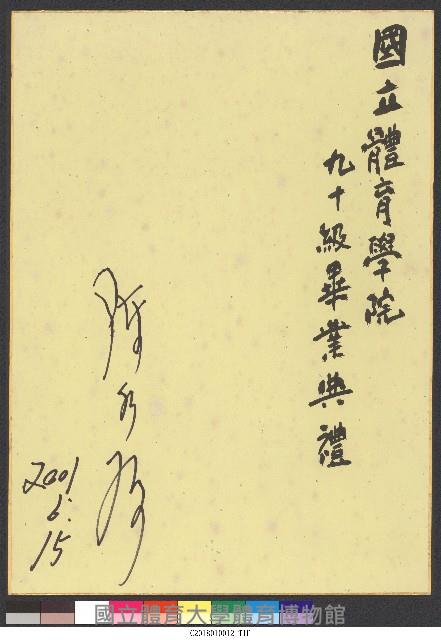 國立體育學院
九十級畢業典禮
陳水扁
2001
6.
15
國立體育大學體育博物館
C2018010012_TIF